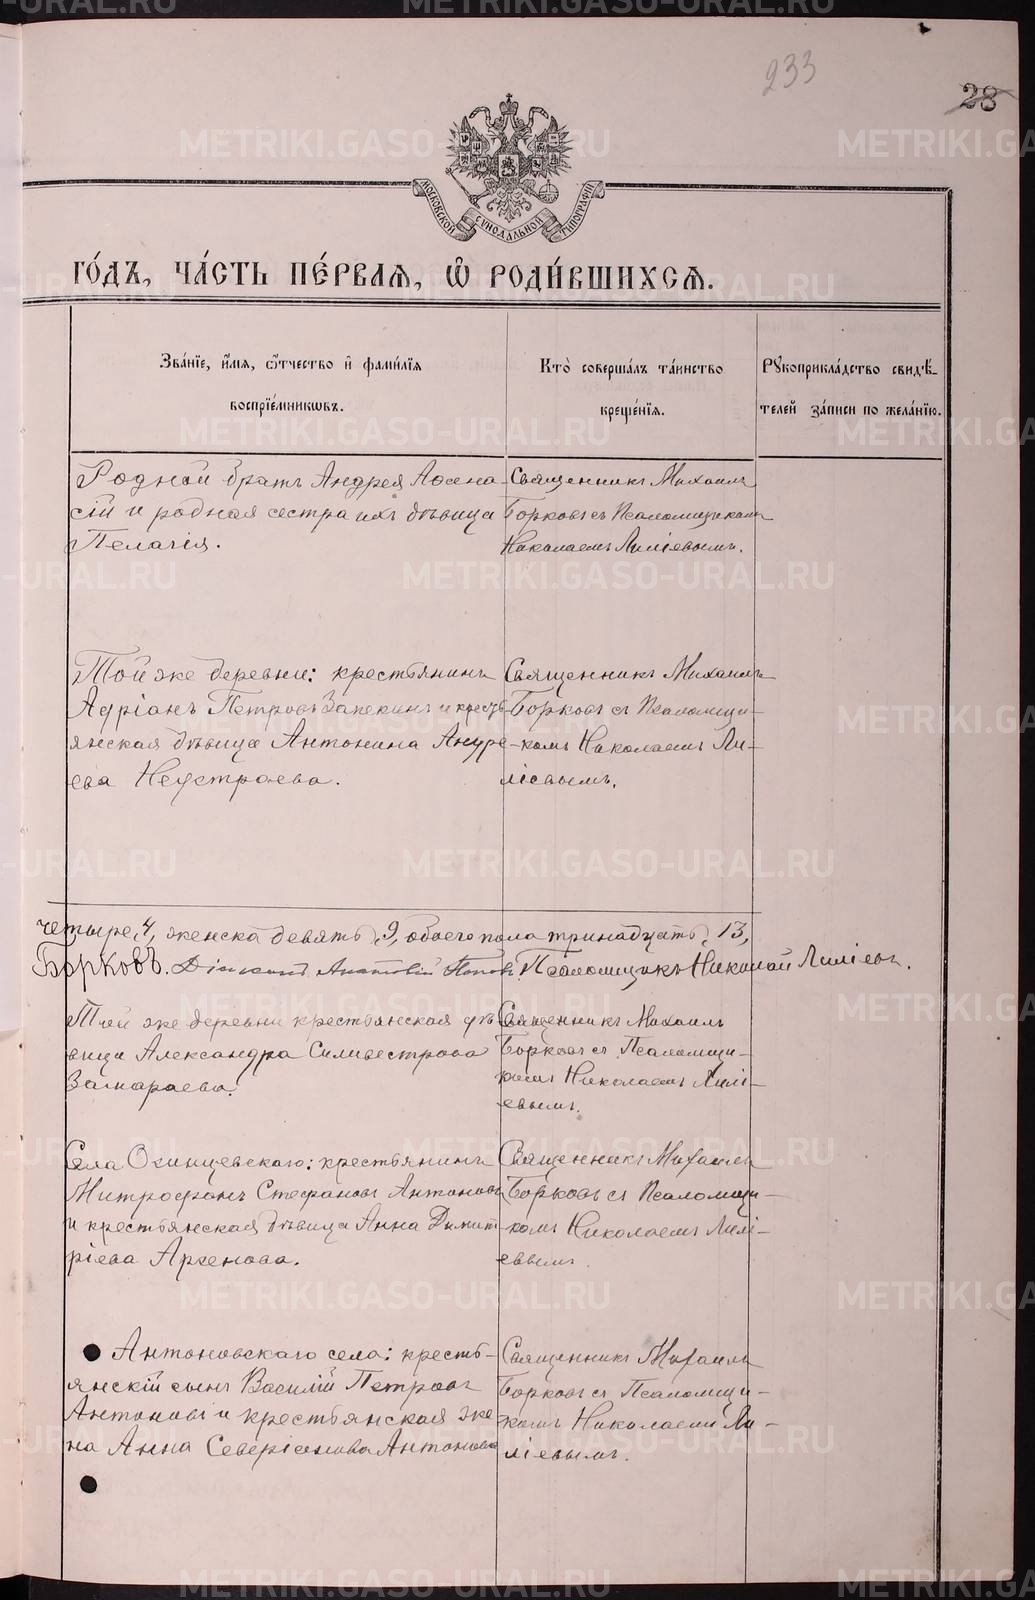 METRIKI.GASO-URAL.RU
233
28
МОСКОВСКОЙ СѴНОДАЛЬНОЙ ТИПОГРАФІИ
ГО́ДЪ, ЧА́СТЬ ПЕ́РВАѦ, Ѽ РОДИ́ВШИХСѦ.
Зва́нїе, и҆́мѧ, ѻ҆́тчество и҆ фами́лїѧ
воспрїе́мникѡвъ.
Кто̀ соверша́лъ та́инство
креще́нїѧ.
Рꙋкоприкла́дство свидѣ́-
телей за́писи по жела́нїю.
Родной братъ Андрея Аѳана
сій и родная сестра ихъ дѣвица
Пелагія.
Священникъ Михаилъ
Борковъ съ Псаломщикомъ
Николаемъ Лиліевымъ.
Той же деревни: крестьянинъ
Адріанъ Петровъ Запекинъ и крестъ
янская дѣвица Антонина Андре
ева Неустроева.
Священникъ Михаилъ
Борковъ съ Псаломщи-
-комъ Николаемъ Ли-
ліевымъ.
четыре, 4, женска девять, 9, обоего пола тринадцать, 13,
Борковъ. Діаконъ Анатолій Поповъ. Псаломщикъ Николай Лиліевъ.
Той же деревни крестьянская дѣ
вица Александра Силивестрова
Замараева.
Священникъ Михаилъ
Борковъ съ Псаломщи-
комъ Николаемъ Лилі-
евымъ.
Села Огинцевскаго: крестьянинъ
Митрофанъ Стефановъ Антоновъ
и крестьянская дѣвица Анна Димит
ріева Аргенова.
Священникъ Михаилъ
Борковъ съ Псаломщи-
комъ Николаемъ Лилі-
евымъ.
Антоновскаго села: кресть-
янскій сынъ Василій Петровъ
Антоновъ и крестьянская же
на Анна Северіанова Антонова
Священникъ Михаилъ
Борковъ съ Псаломщи-
комъ Николаемъ Ли-
ліевымъ.